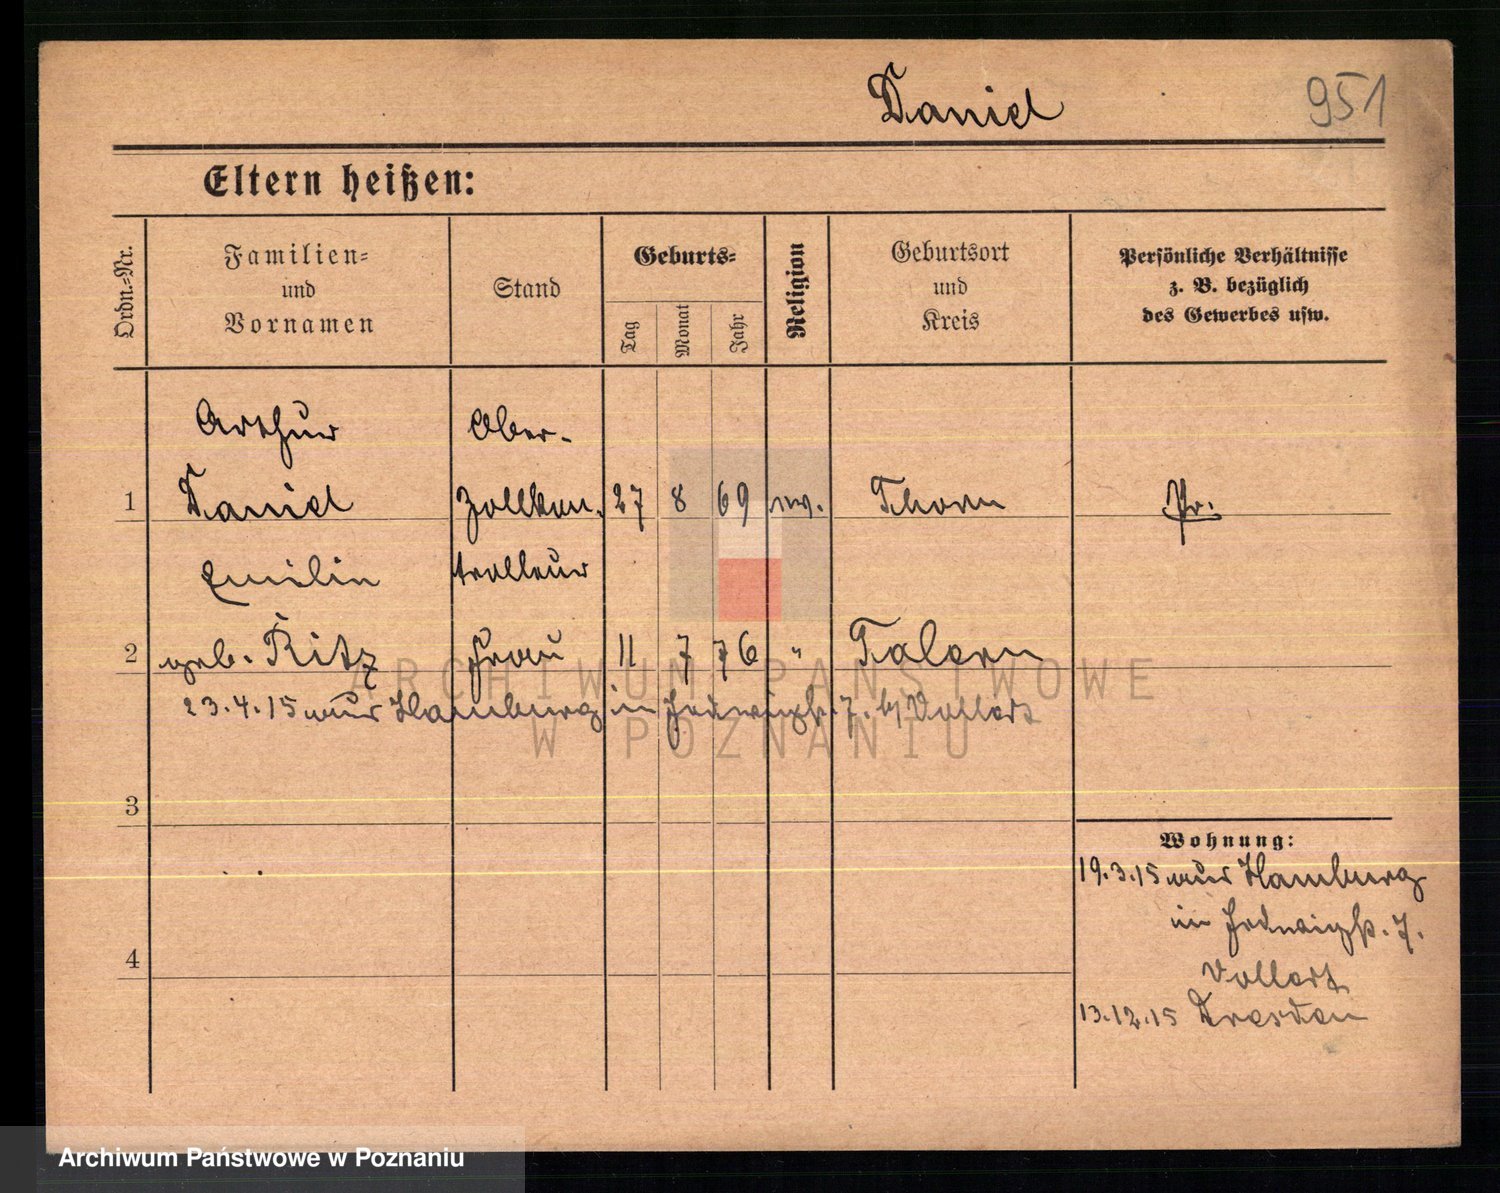 Daniel
951
Eltern heißen:
Ordn.-Nr.
Familien-
und
Vornamen
Stand
Geburts-
Tag
Monat
Jahr
Religion
Geburtsort
und
Kreis
Persönliche Verhältnisse
z. B. bezüglich
des Gewerbes usw.
Arthur Ober-
1 Daniel Zollkon- 27 8 69 ev. Thorn Pr.
Emilie trolleur
2 geb. Ritz Frau 11 7 76 "
23.4.15 aus Hamburg in Hedwigstr. 7. b/ Vollert
3
Wohnung:
19.3.15 aus Hamburg
in Hedwigstr. 7.
Vollert
4
13.12.15 Dresden
ARCHIWUM PAŃSTWOWE
W POZNANIU
Archiwum Państwowe w Poznaniu